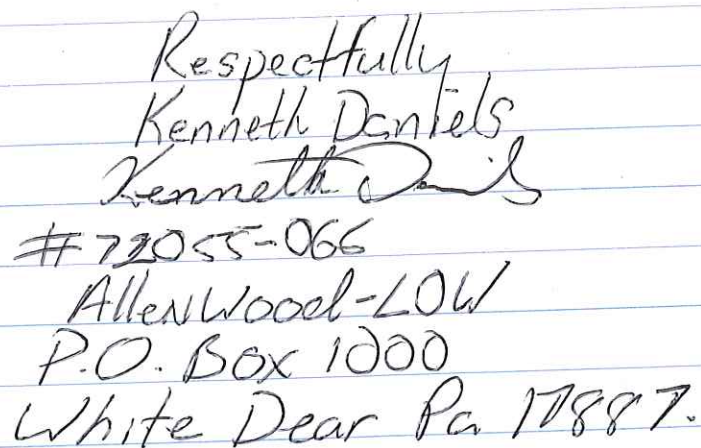 Respectfully
Kenneth Daniels
Kenneth Daniels
#72055-066
Allenwood-LOW
P.O. Box 1000
White Dear Pa 17887.